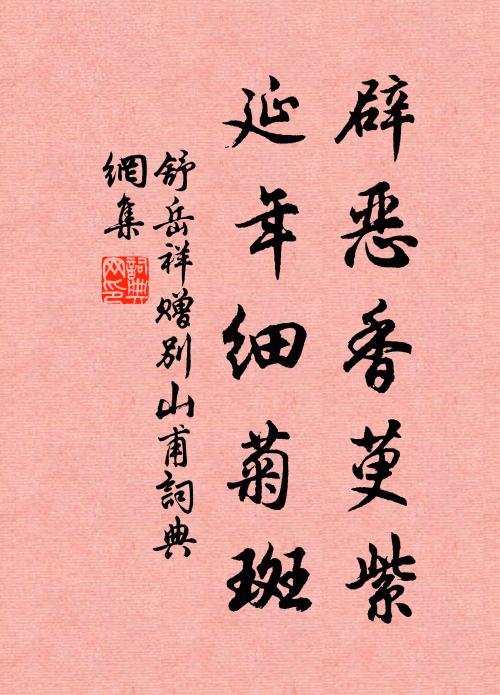 辟恶香萸紫
延年细菊斑
舒岳祥赠别山甫詞典
網集
詞典
网印